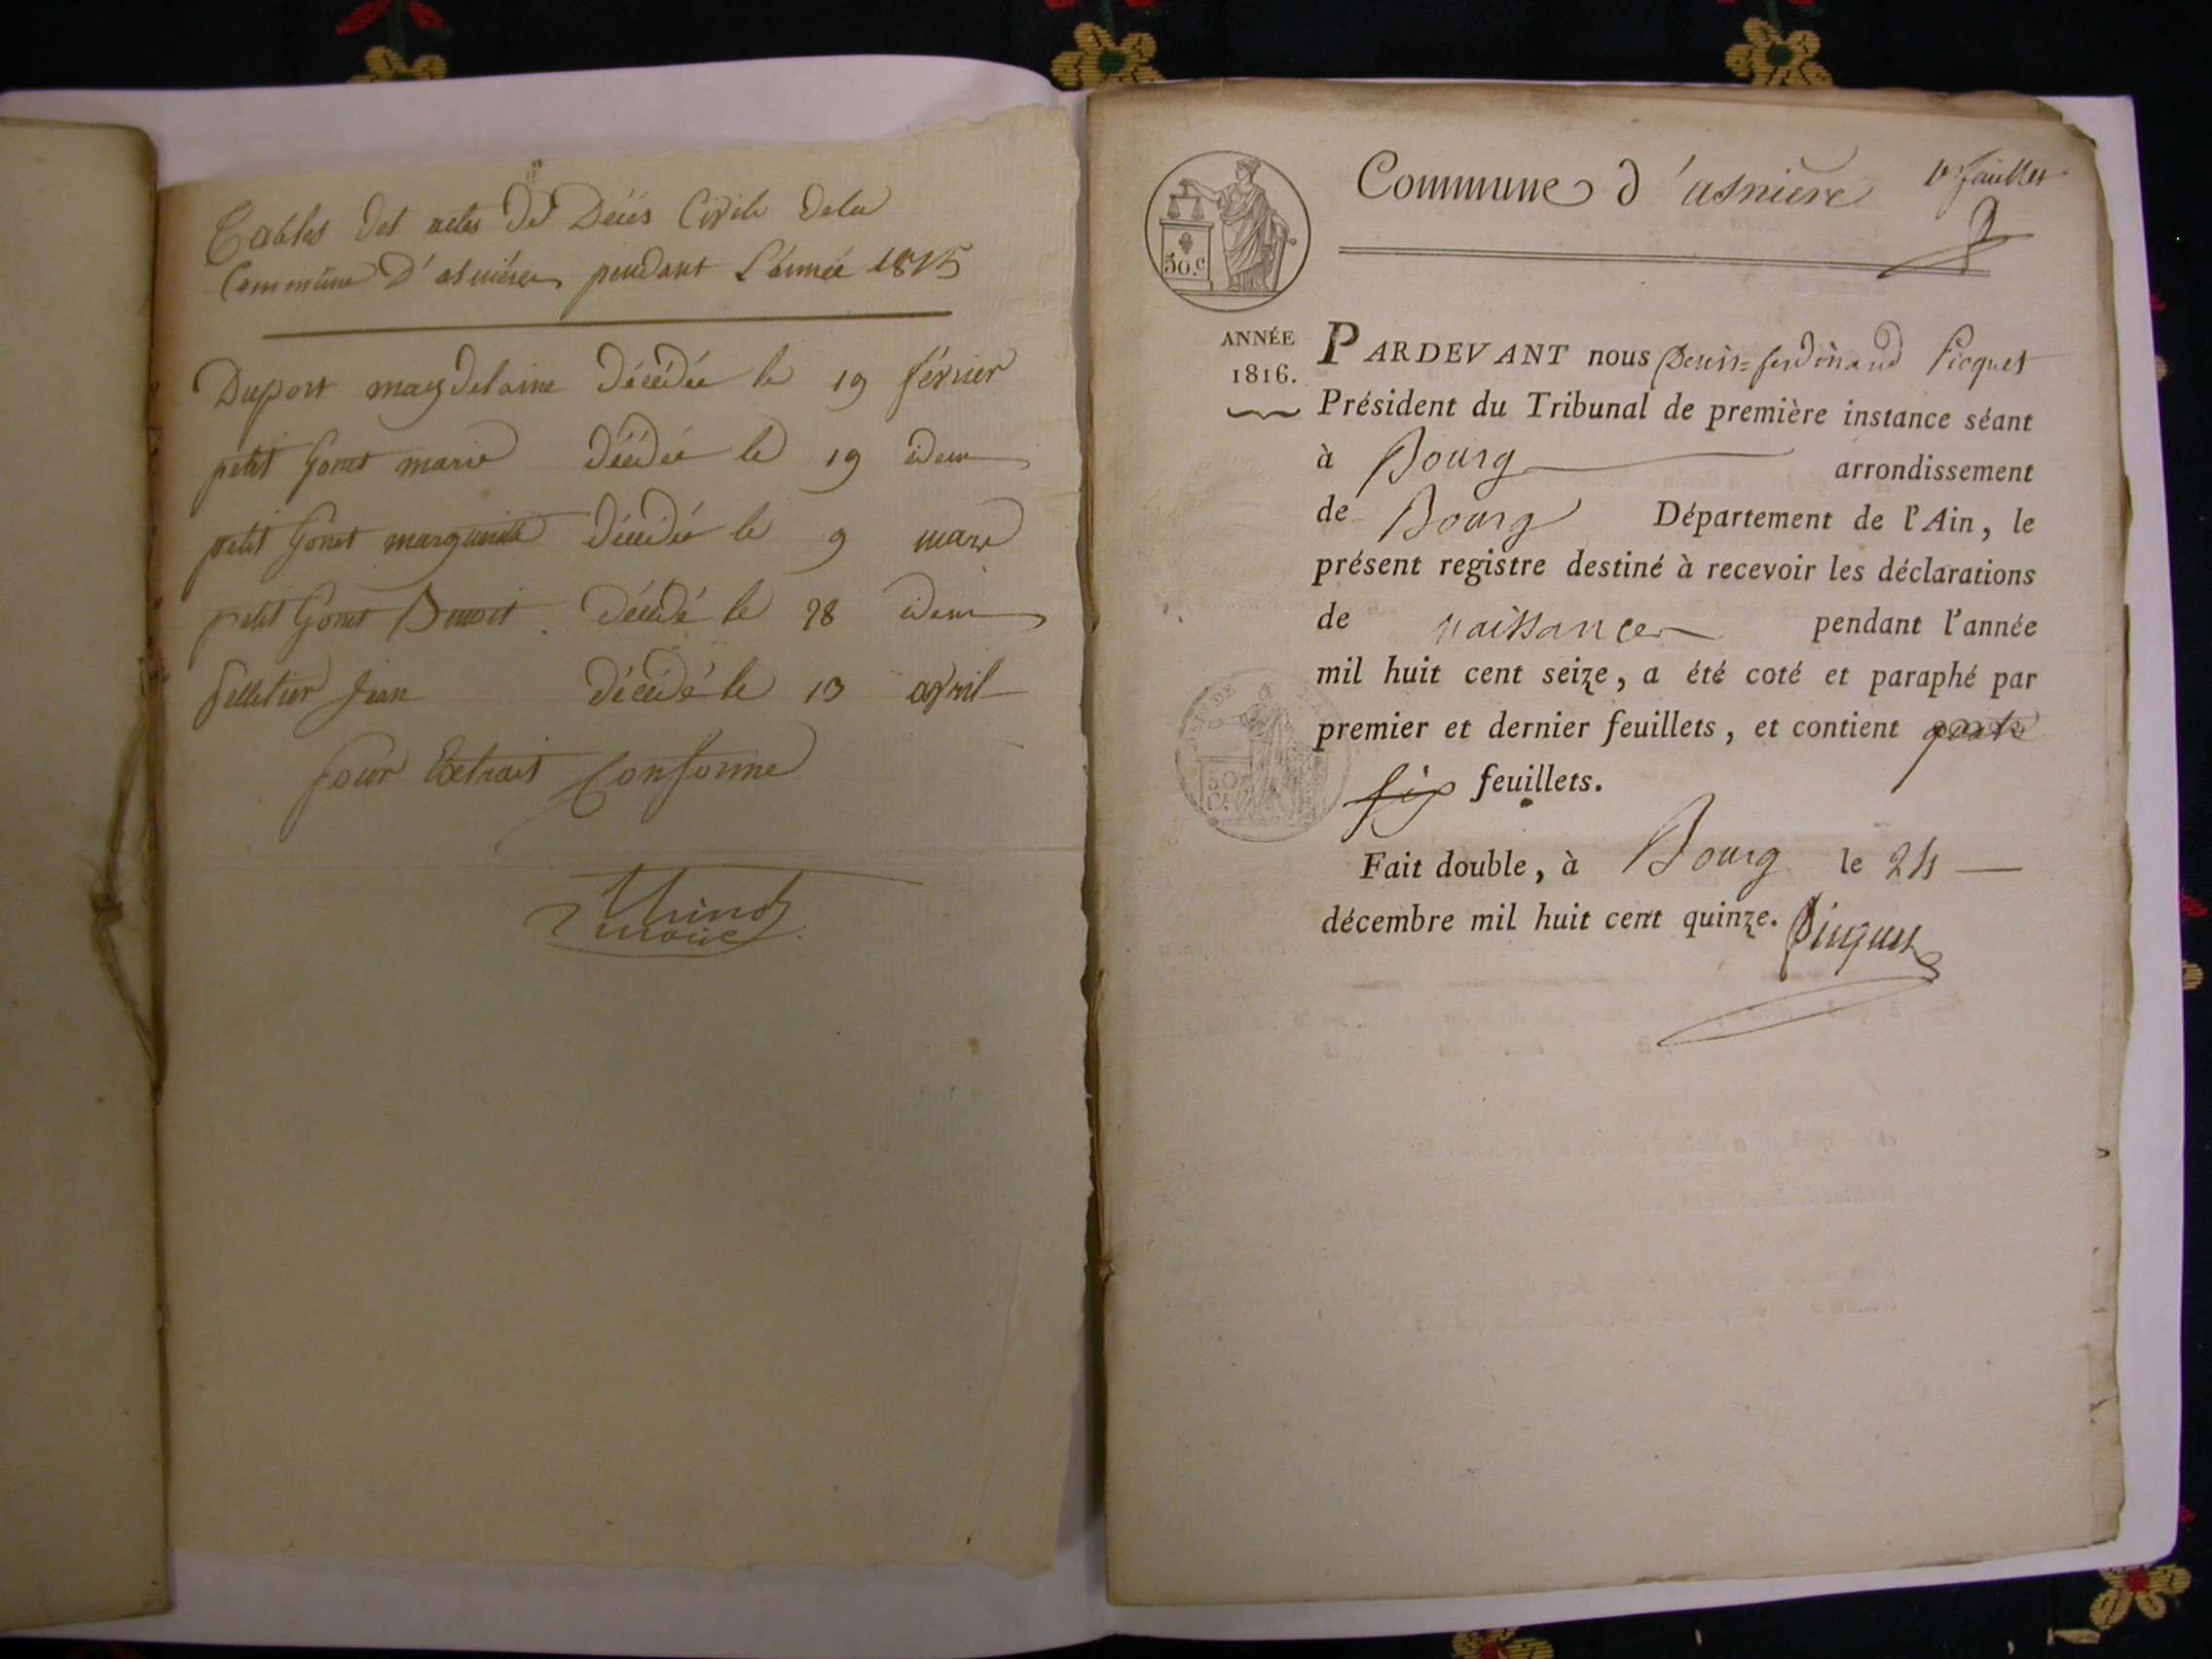 Tables des actes de Décés Civile dela
Commune D'asnieres pendant L'année 1815
Duport magdelaine décédée le 19 février
petit Gonet marie décédée le 19 idem
petit Gonet marguerite décédée le 9 mars
petit Gonet Benoit décédé le 28 idem
pelletier Jean décédé le 13 avril
pour Extrait Conforme
maire
Commune d'asniere 1er feuillet
50.c
ANNÉE
1816.
PARDEVANT nous Denis=ferdinand Picquet
Président du Tribunal de première instance séant
à Bourg arrondissement
de Bourg Département de l'Ain, le
présent registre destiné à recevoir les déclarations
de naissances pendant l'année
mil huit cent seize, a été coté et paraphé par
premier et dernier feuillets, et contient
six feuillets.
50
C.
Fait double, à Bourg le 24
décembre mil huit cent quinze. Picquet